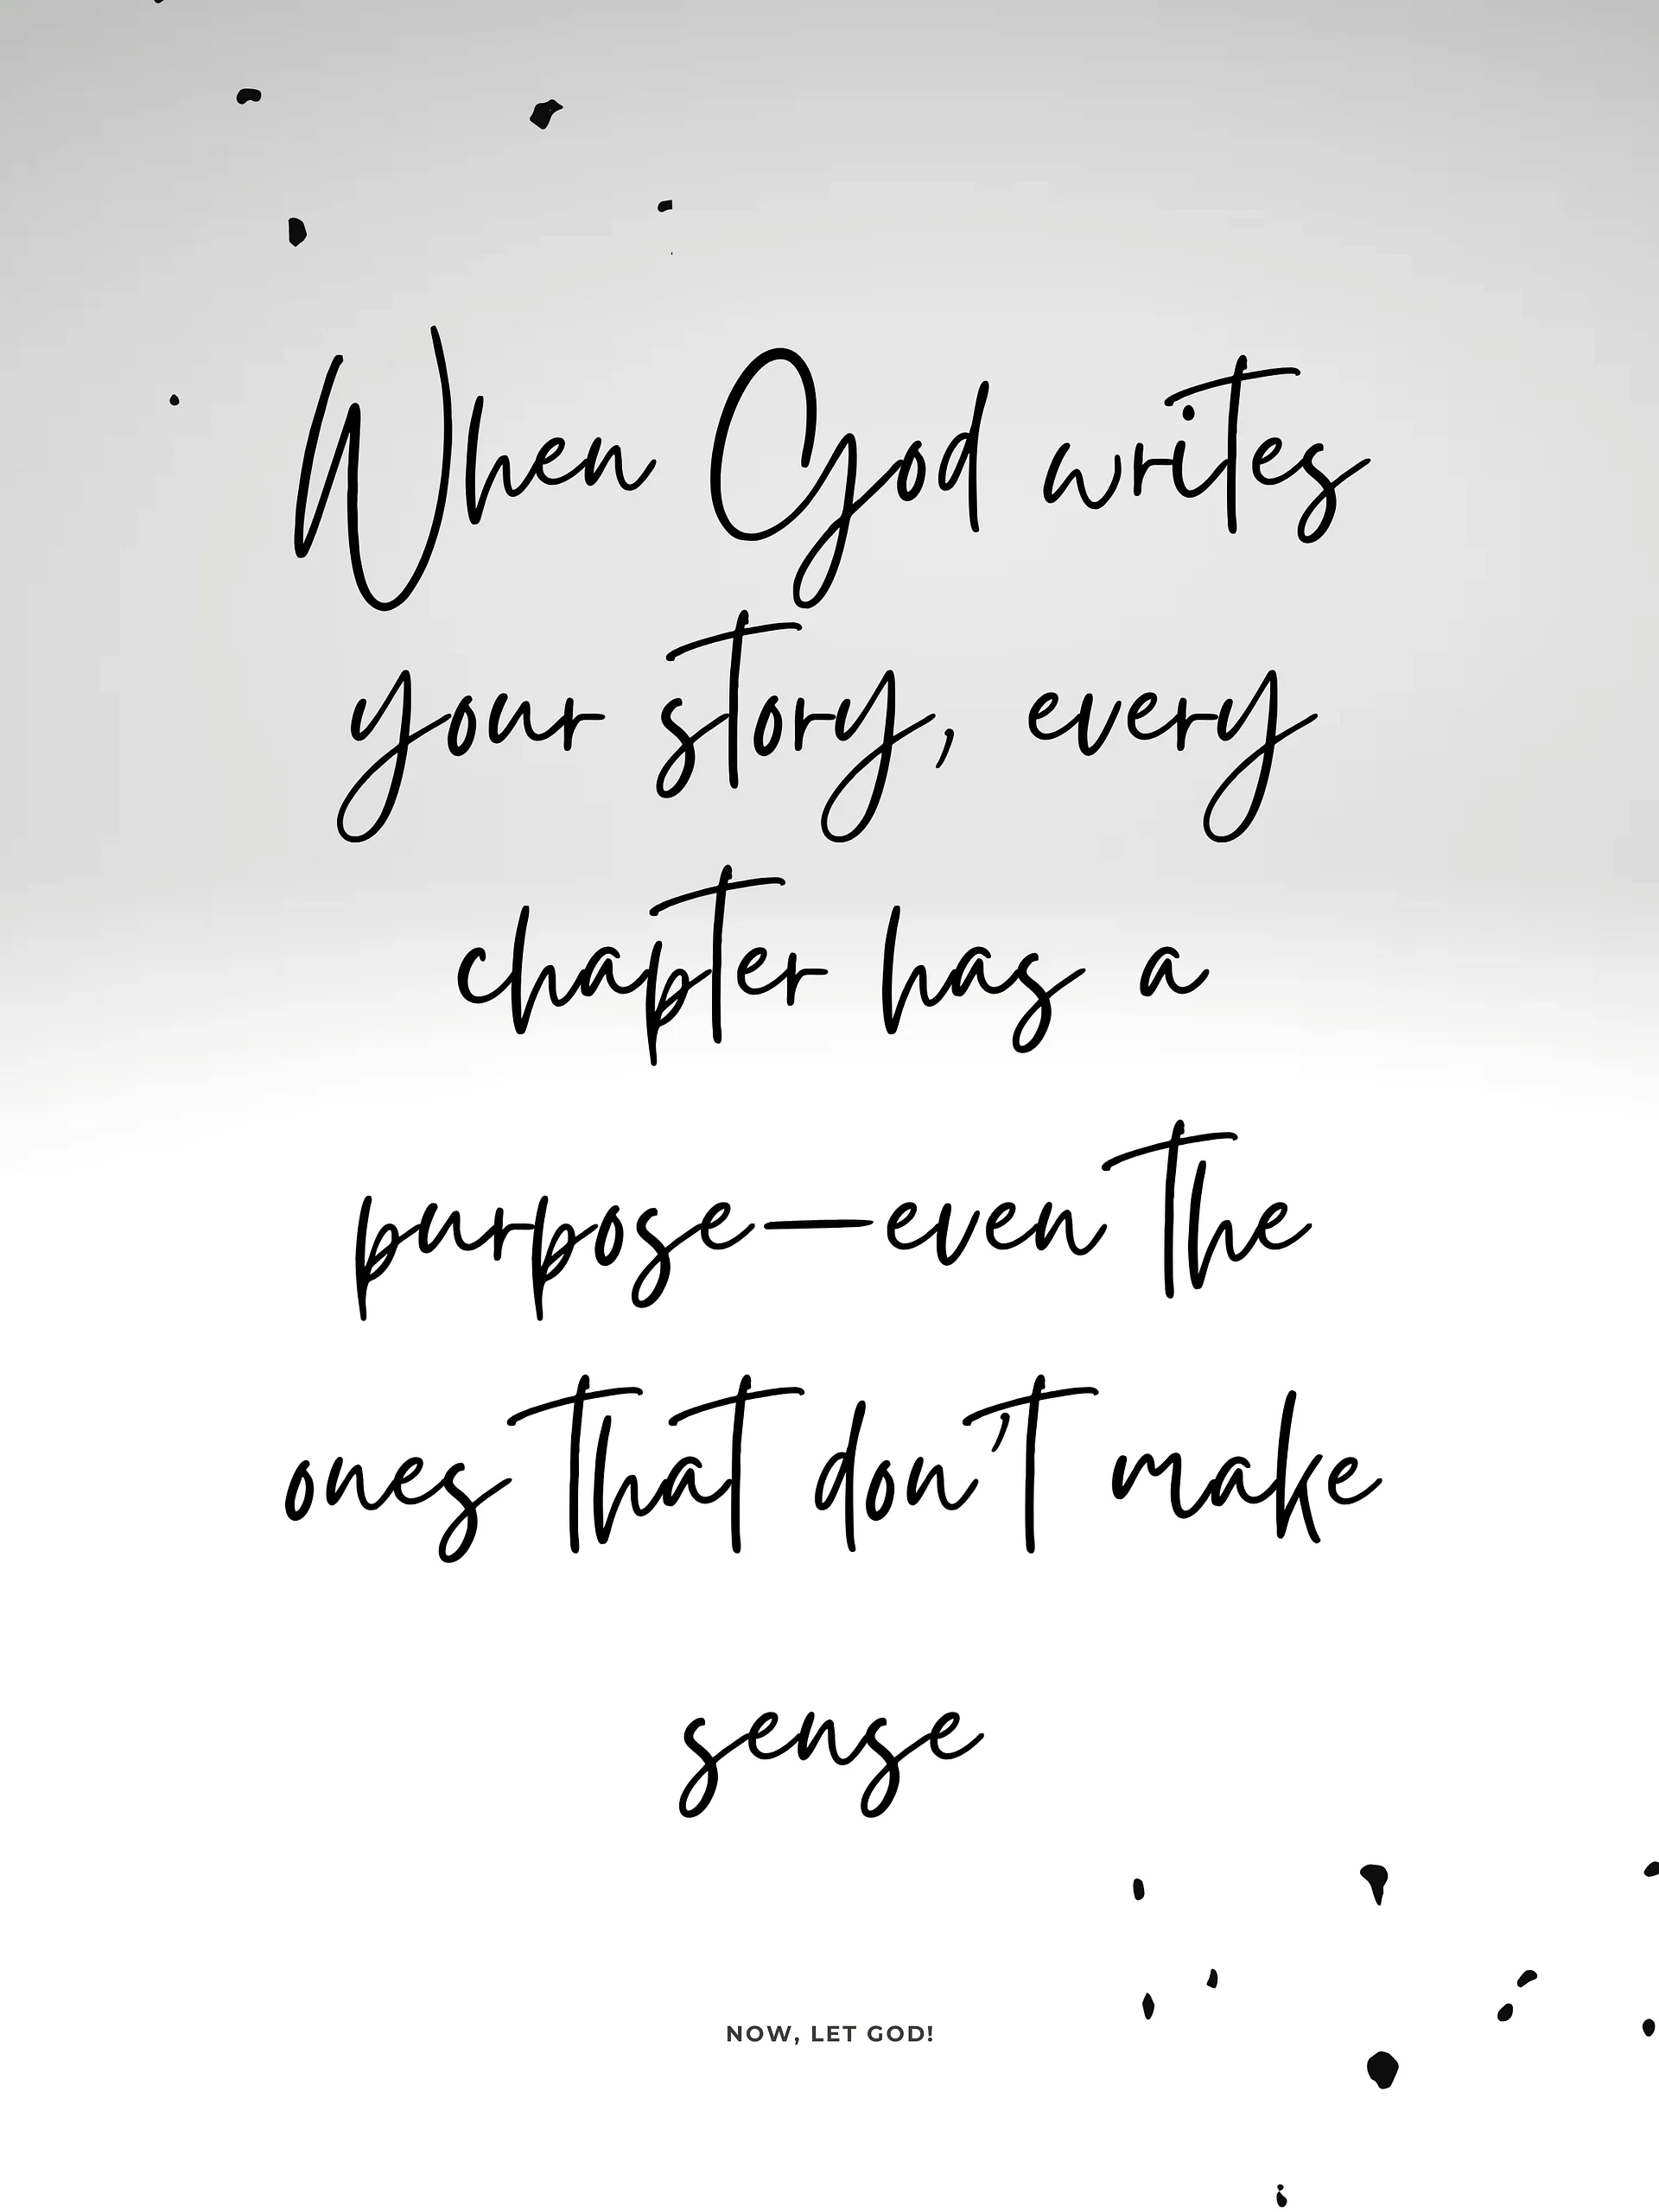 When God writes
your story, every
chapter has a
purpose—even the
ones that don't make
sense
NOW, LET GOD!